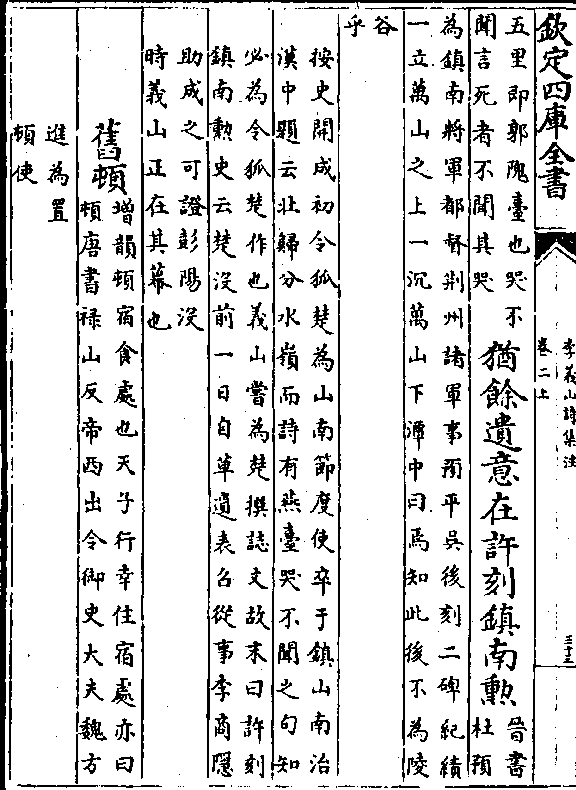 欽定四庫全書
李義山詩集注
卷二上
三十三
五里即郭隗臺也哭不
聞言死者不聞其哭
猶餘遺意在許刻鎮南勲
晉書
杜預
為鎮南將軍都督荆州諸軍事預平吳後刻二碑紀績
一立萬山之上一沉萬山下潭中曰焉知此後不為陵
谷
乎
按史開成初令狐楚為山南節度使卒于鎮山南治
漢中題云壯歸分水嶺而詩有燕臺哭不聞之句知
必為令狐楚作也義山嘗為楚撰誌文故末曰許刻
鎮南勲史云楚沒前一日自草遺表名從事李商隱
助成之可證彭陽沒
時義山正在其幕也
舊頓
增韻頓宿食處也天子行幸住宿處亦曰
頓唐書禄山反帝西出令御史大夫魏方
進為置
頓使